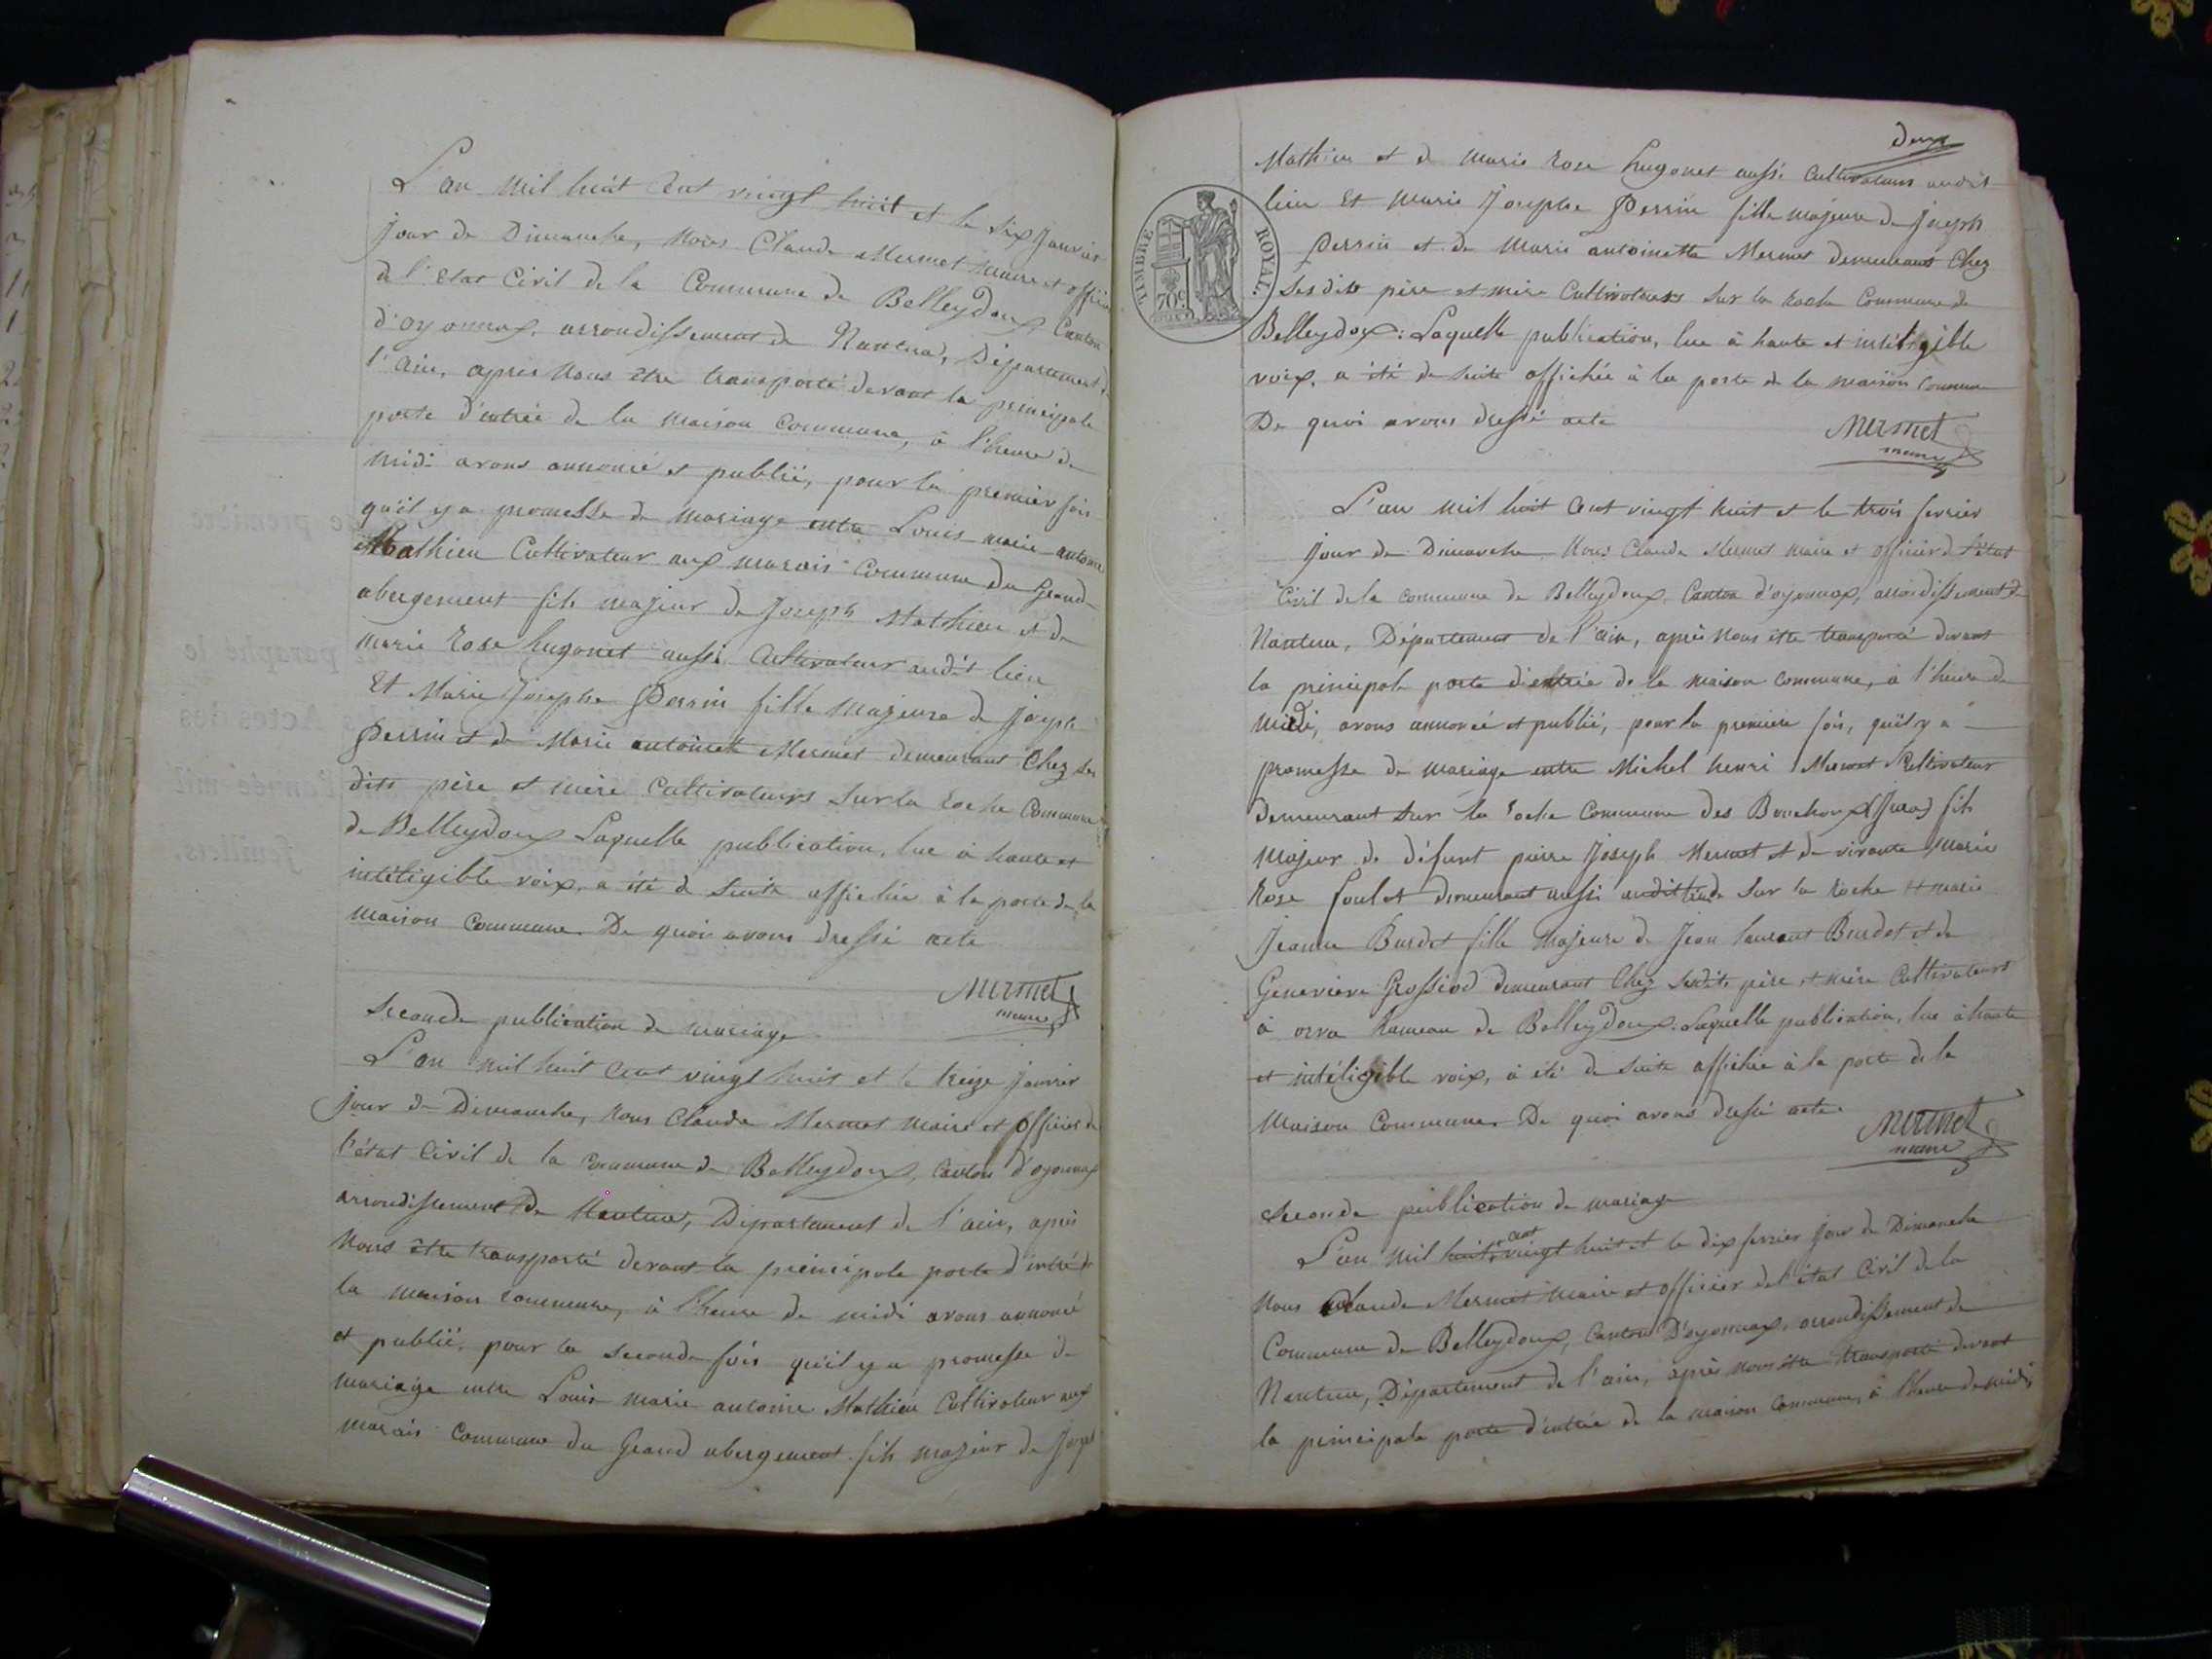 L'an mil huit cent vingt huit et le six Janvier
jour de Dimanche, Nous Claude Mermet Maire et officier
de l'etat Civil de la Commune de Belleydoux Canton
d'oyonnax, arrondissement de Nantua, Département de
l'ain, après Nous être transporté devant la principale
porte d'entrée de la maison commune, à l'heure de
midi avons annoncé et publié, pour la premier fois
qu'il y a promesse de mariage entre Louis marie antoine
Mathieu Cultivateur aux marais commune du Grand
abergement fils majeur de Joseph Mathieu et de
marie Rose hugonet aussi Cultivateur audit lieu
Et Marie Josephe Perrin fille majeure de Joseph
Perrin et de Marie antoinette Mermet demeurant Chez ses
dits père et mère Cultivateurs sur la Roche Commune
de Belleydoux Laquelle publication, lue à haute et
intéligible voix, a été de suite affichée à la porte de la
maison commune. De quoi avons dressé acte
Mermet
maire
Seconde publication de mariage
L'an mil huit cent vingt huit et le treize janvier
jour de Dimanche, Nous Claude Mermet Maire et Officier de
l'état Civil de la commune de Belleydoux, Canton d'oyonnax
arrondissement De Nantua, Département de l'ain, après
Nous être transporté devant la principale porte d'entrée de
la maison commune, à l'heure de midi avons annoncé
et publié, pour la seconde fois qu'il y a promesse de
mariage entre Louis marie antoine Mathieu Cultivateur aux
marais commune du Grand abergement fils majeur de Joseph
Deux
Mathieu et de Marie Rose hugonet aussi Cultivateurs audit
lieu Et Marie Josephe Perrin fille majeure de Joseph
Perrin et de Marie antoinette Mermet demeurant Chez
ses dits père et mère Cultivateurs sur la Roche Commune de
TIMBRE ROYAL.
70c
Belleydoux: Laquelle publication, lue à haute et intéligible
voix, a été de suite affichée à la porte de la maison commune
De quoi avons dressé acte
Mermet
maire
L'an mil huit cent vingt huit et le trois fevrier
jour de Dimanche Nous Claude Mermet Maire et officier de l'état
Civil de la commune de Belleydoux, Canton d'oyonnax, arrondissement de
Nantua, Département de l'ain, après nous être transporté devant
la principale porte d'entrée de la maison commune, à l'heure de
midi, avons annoncé et publié, pour la premiere fois, qu'il y a
promesse de mariage entre Michel henri Mermet Cultivateur
Demeurant sur la roche Commune des Bouchoux (Jura) fils
majeur de défunt pierre Joseph Mermet et de vivante Marie
Rose foulet demeurant aussi audit lieu de sur la Roche Et marie
Jeanne Burdet fille majeure de Jean laurant Burdet et de
Genevieve Grossiod demeurant Chez sesdits père et mère Cultivateurs
à orva hameau de Belleydoux. Laquelle publication, lue à haute
et intéligible voix, à été de suite affichée à la porte de la
Maison Commune. De quoi avons dressé acte.
Mermet
maire
Seconde publication de mariage
L'an mil huit cent vingt huit et le dix fevrier jour de Dimanche
Nous Claude Mermet Maire et officier de l'état Civil de la
Commune de Belleydoux, Canton D'oyonnax, arrondissement de
Nantua, Département de l'ain, après nous être transporté devant
la principale porte d'entrée de la maison Commune, à l'heure de midi,